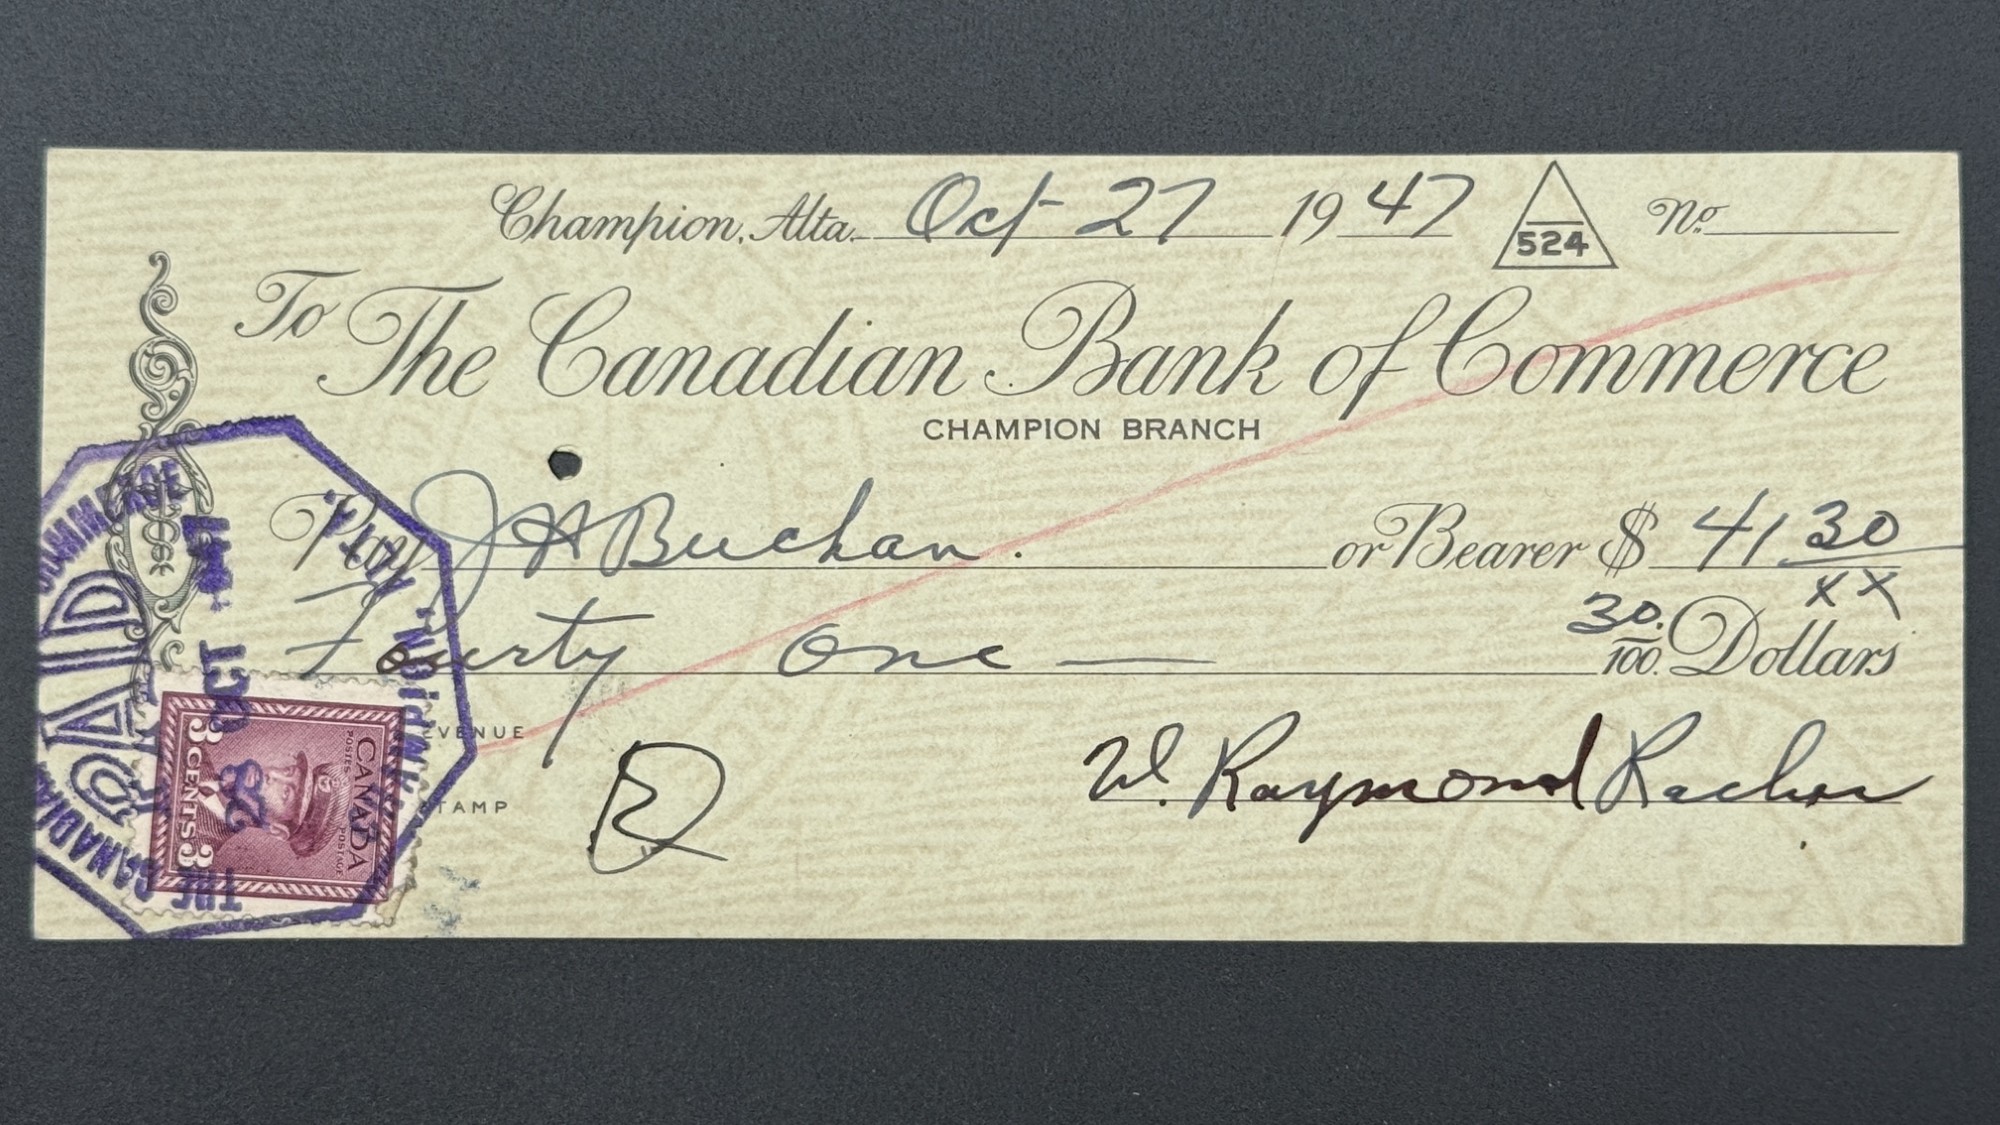 Champion, Alta. Oct 27 1947 524 No.
To The Canadian Bank of Commerce
CHAMPION BRANCH
Pay J A Buchan. or Bearer $ 41 30/xx
Fourty One — 30./100. Dollars
REVENUE
STAMP
W. Raymond
THE CANADIAN COMMERCE
PAID
OCT 28
CHAMPION, ALTA.
CANADA
POSTES POSTAGE
3 CENTS 3